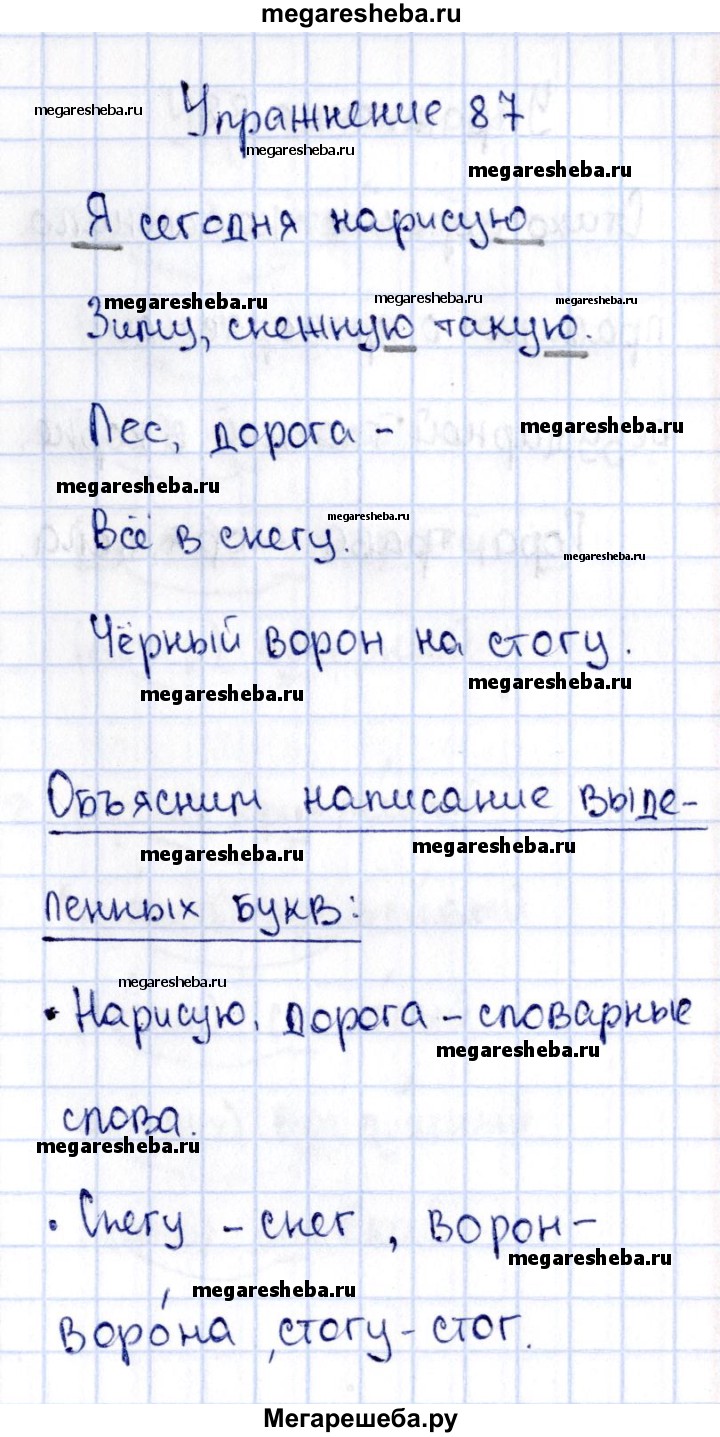 megaresheba.ru
Упражнение 87
megaresheba.ru
megaresheba.ru
megaresheba.ru
Я сегодня нарисую
megaresheba.ru megaresheba.ru megaresheba.ru
Зиму, снежную такую.
Лес, дорога – megaresheba.ru
megaresheba.ru
megaresheba.ru
Всё в снегу.
megaresheba.ru
Чёрный ворон на стогу.
megaresheba.ru megaresheba.ru
Объясним написание выде-
megaresheba.ru megaresheba.ru
ленных букв:
megaresheba.ru
• Нарисую, дорога – словарные
megaresheba.ru
слова.
megaresheba.ru
• Снегу – снег, ворон –
megaresheba.ru
megaresheba.ru
воро́на, стогу – стог.
Мегарешеба.ру